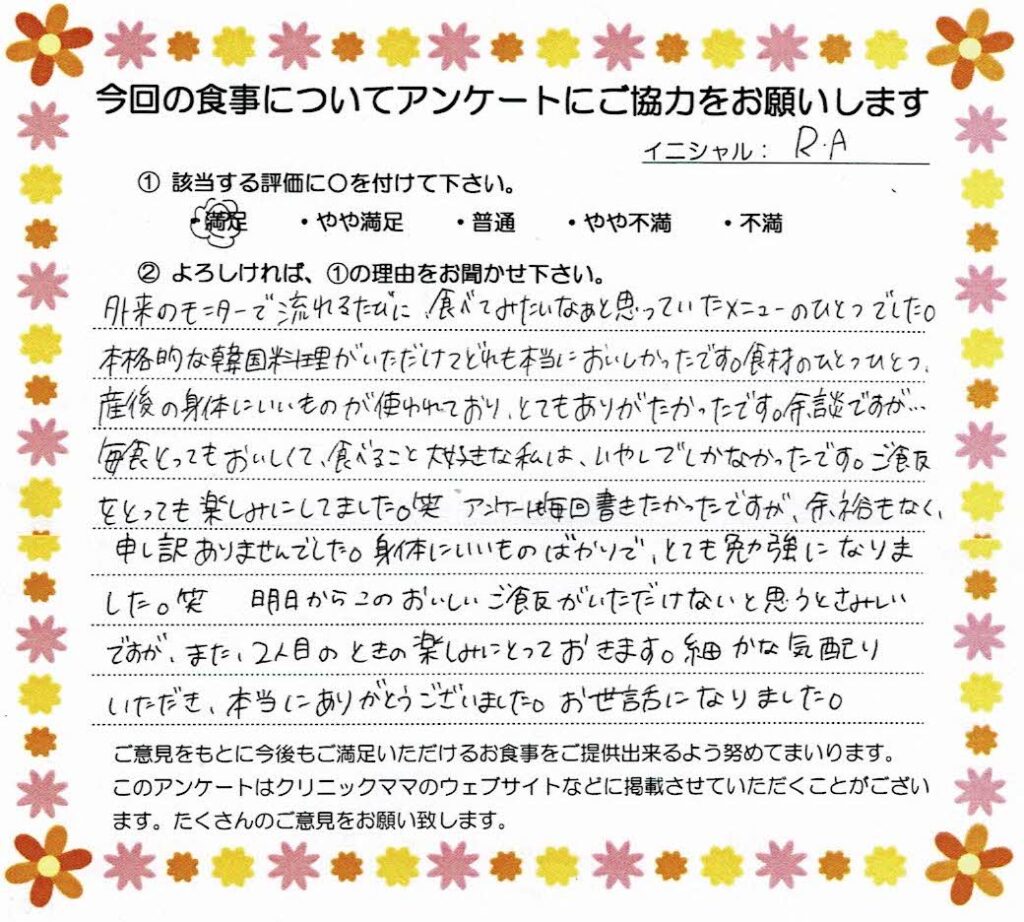 今回の食事についてアンケートにご協力をお願いします
イニシャル： R.A
① 該当する評価に○を付けて下さい。
・満足 ・やや満足 ・普通 ・やや不満 ・不満
② よろしければ、①の理由をお聞かせ下さい。
外来のモニターで流れるたびに、食べてみたいなぁと思っていたメニューのひとつでした。
本格的な韓国料理がいただけてどれも本当においしかったです。食材のひとつひとつ、
産後の身体にいいものが使われており、とてもありがたかったです。余談ですが…
毎食とってもおいしくて、食べること大好きな私は、いやしでしかなかったです。ご飯
をとっても楽しみにしてました。笑 アンケートは毎回書きたかったですが、余裕もなく、
申し訳ありませんでした。身体にいいものばかりで、とても勉強になりま
した。笑 明日からこのおいしいご飯がいただけないと思うとさみしい
ですが、また、2人目のときの楽しみにとっておきます。細かな気配り
いただき、本当にありがとうございました。お世話になりました。
ご意見をもとに今後もご満足いただけるお食事をご提供出来るよう努めてまいります。
このアンケートはクリニックママのウェブサイトなどに掲載させていただくことがござい
ます。たくさんのご意見をお願い致します。